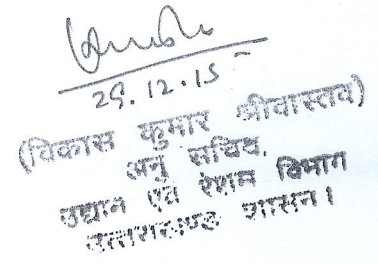 29.12.15
(विकास कुमार श्रीवास्तव)
अनु सचिव,
उद्यान एवं रेशम विभाग
उत्तराखण्ड शासन।